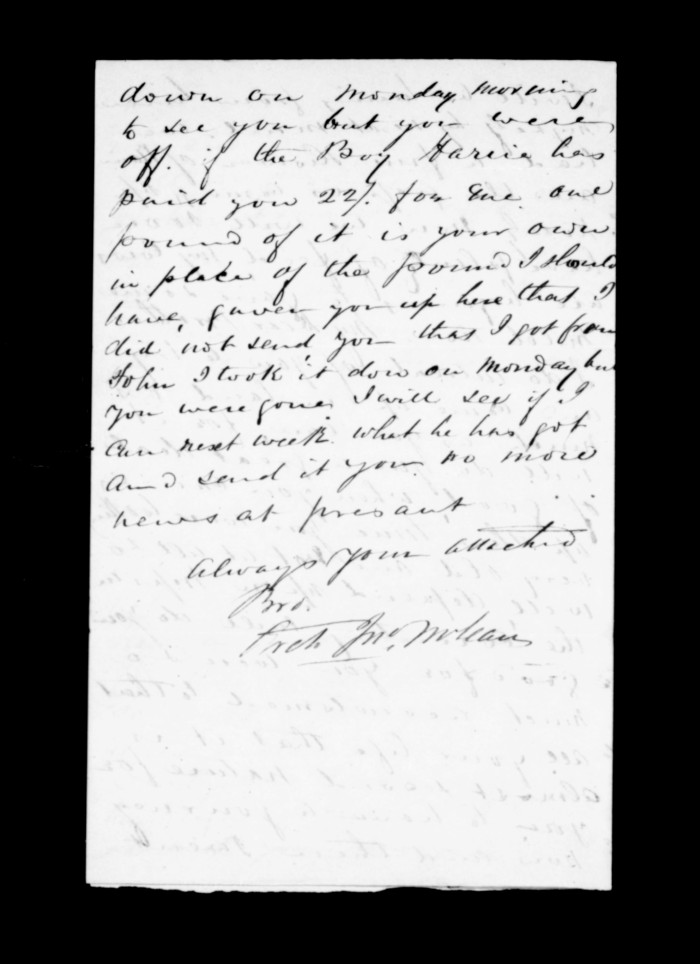 down on Monday morning
to see you but you were
off. if the Boy Harie has
paid you 22/. for me one
pound of it is your own
in place of the pound I should
have, gaven you up here that I
did not send, you that I got from
John I took it don on Monday but
you were gone, I will see if I
can next week. what he has got
and send it you no more
news at presant
Always your attached
Bro.
Arch Jno. McLean